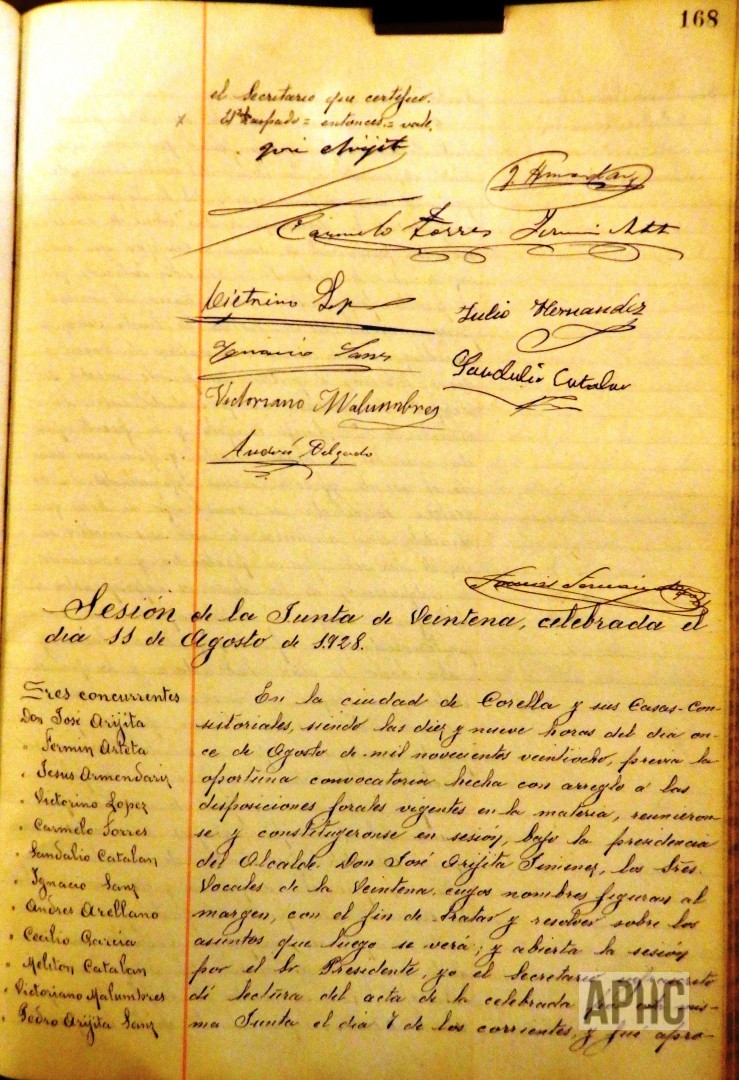 168
el Secretario que certifico.
raspado = entonces = vale.
José Arijita
J. Armendariz
Carmelo Torres Fermin
Victorino
Julio Hernandez
Ignacio Sanz
Sandalio Catalan
Victoriano Malumbres
Andrés Delgado
Sesión de la Junta de Veintena, celebrada el
dia 11 de Agosto de 1.928.
Sres concurrentes
Don José Arijita
" Fermin Arteta
" Jesus Armendariz
" Victorino Lopez
" Carmelo Torres
" Sandalio Catalan
" Ignacio Sanz
" Andres Arellano
" Cecilio Garcia
" Meliton Catalan
" Victoriano Malumbres
" Pedro Arijita Sanz
En la ciudad de Corella y sus Casas-Con-
sistoriales, siendo las diez y nueve horas del dia on-
ce de Agosto de mil novecientos veintiocho, previa la
oportuna convocatoria hecha con arreglo á las
disposiciones forales vigentes en la materia, reunieron-
se y constituyeronse en sesión, bajo la presidencia
del Alcalde Don José Arijita Jimenez, los Sres.
Vocales de la Veintena cuyos nombres figuran al
margen, con el fin de tratar y resolver sobre los
asuntos que luego se verá; y abierta la sesión
por el Sr. Presidente, yo el Secretario
dí lectura del acta de la celebrada
ma Junta el dia 7 de los corrientes, y fué apro-
APHC